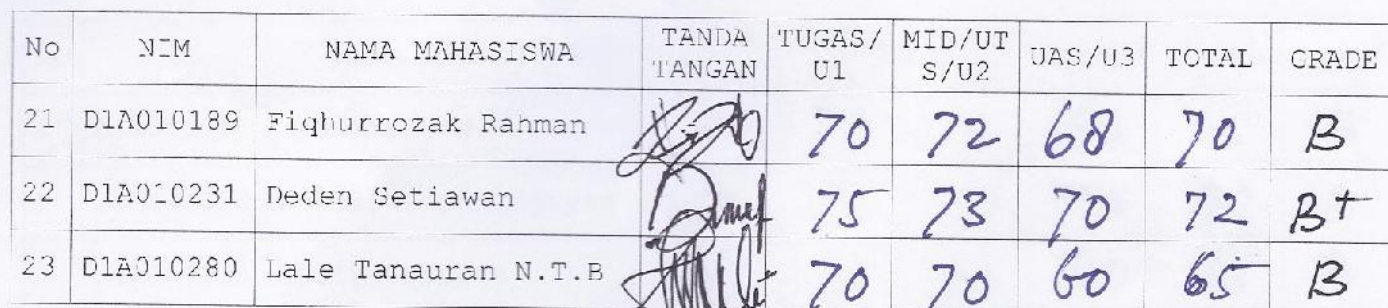 No NIM NAMA MAHASISWA TANDA TANGAN TUGAS/U1 MID/UTS/U2 UAS/U3 TOTAL GRADE
21 D1A010189 Fiqhurrozak Rahman 70 72 68 70 B
22 D1A010231 Deden Setiawan 75 73 70 72 B+
23 D1A010280 Lale Tanauran N.T.B 70 70 60 65 B